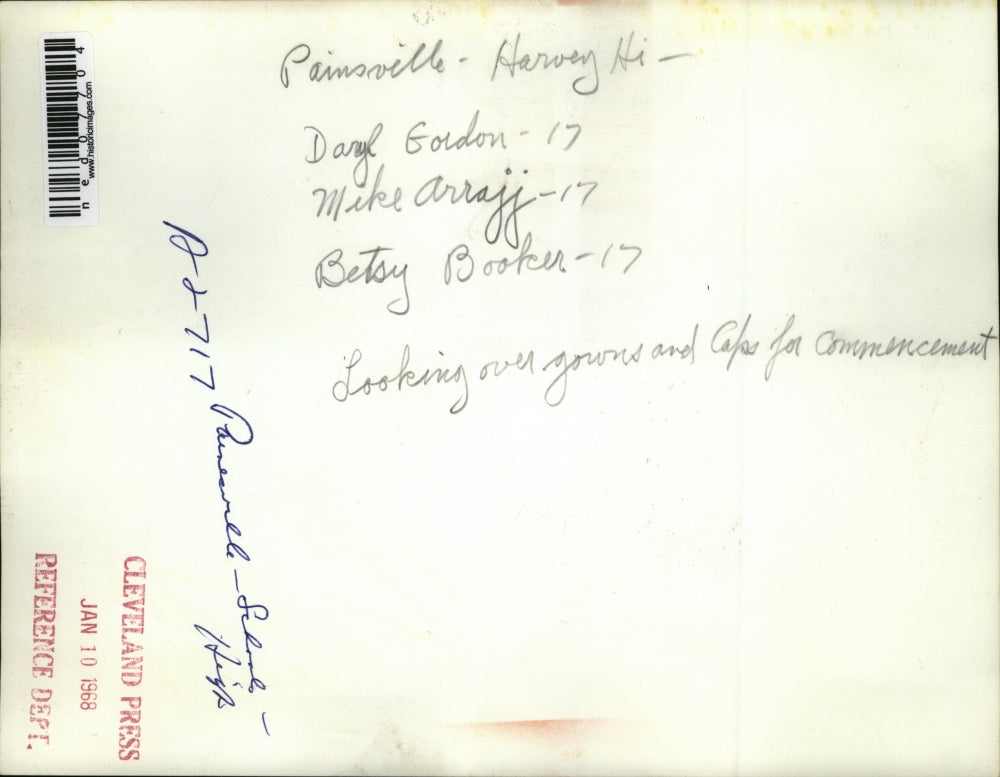 Painsville - Harvey Hi -
Daryl Gordon - 17
Mike Arrajj - 17
Betsy Booker - 17
Looking over gowns and Caps for Commencement
A-2-717 Painesville - Schools -
High
CLEVELAND PRESS
JAN 10 1968
REFERENCE DEPT.
www.historicimages.com
ned07704